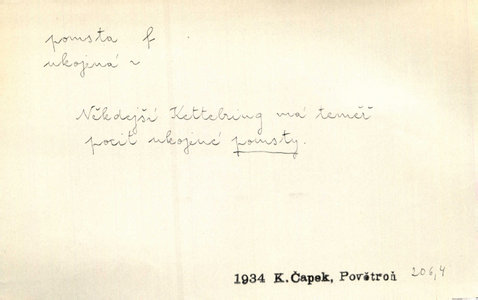 pomsta f
ukojená ~
Někdejší Kettelring má téměř
pocit ukojené pomsty.
1934 K.Čapek, Povětroň 206,4